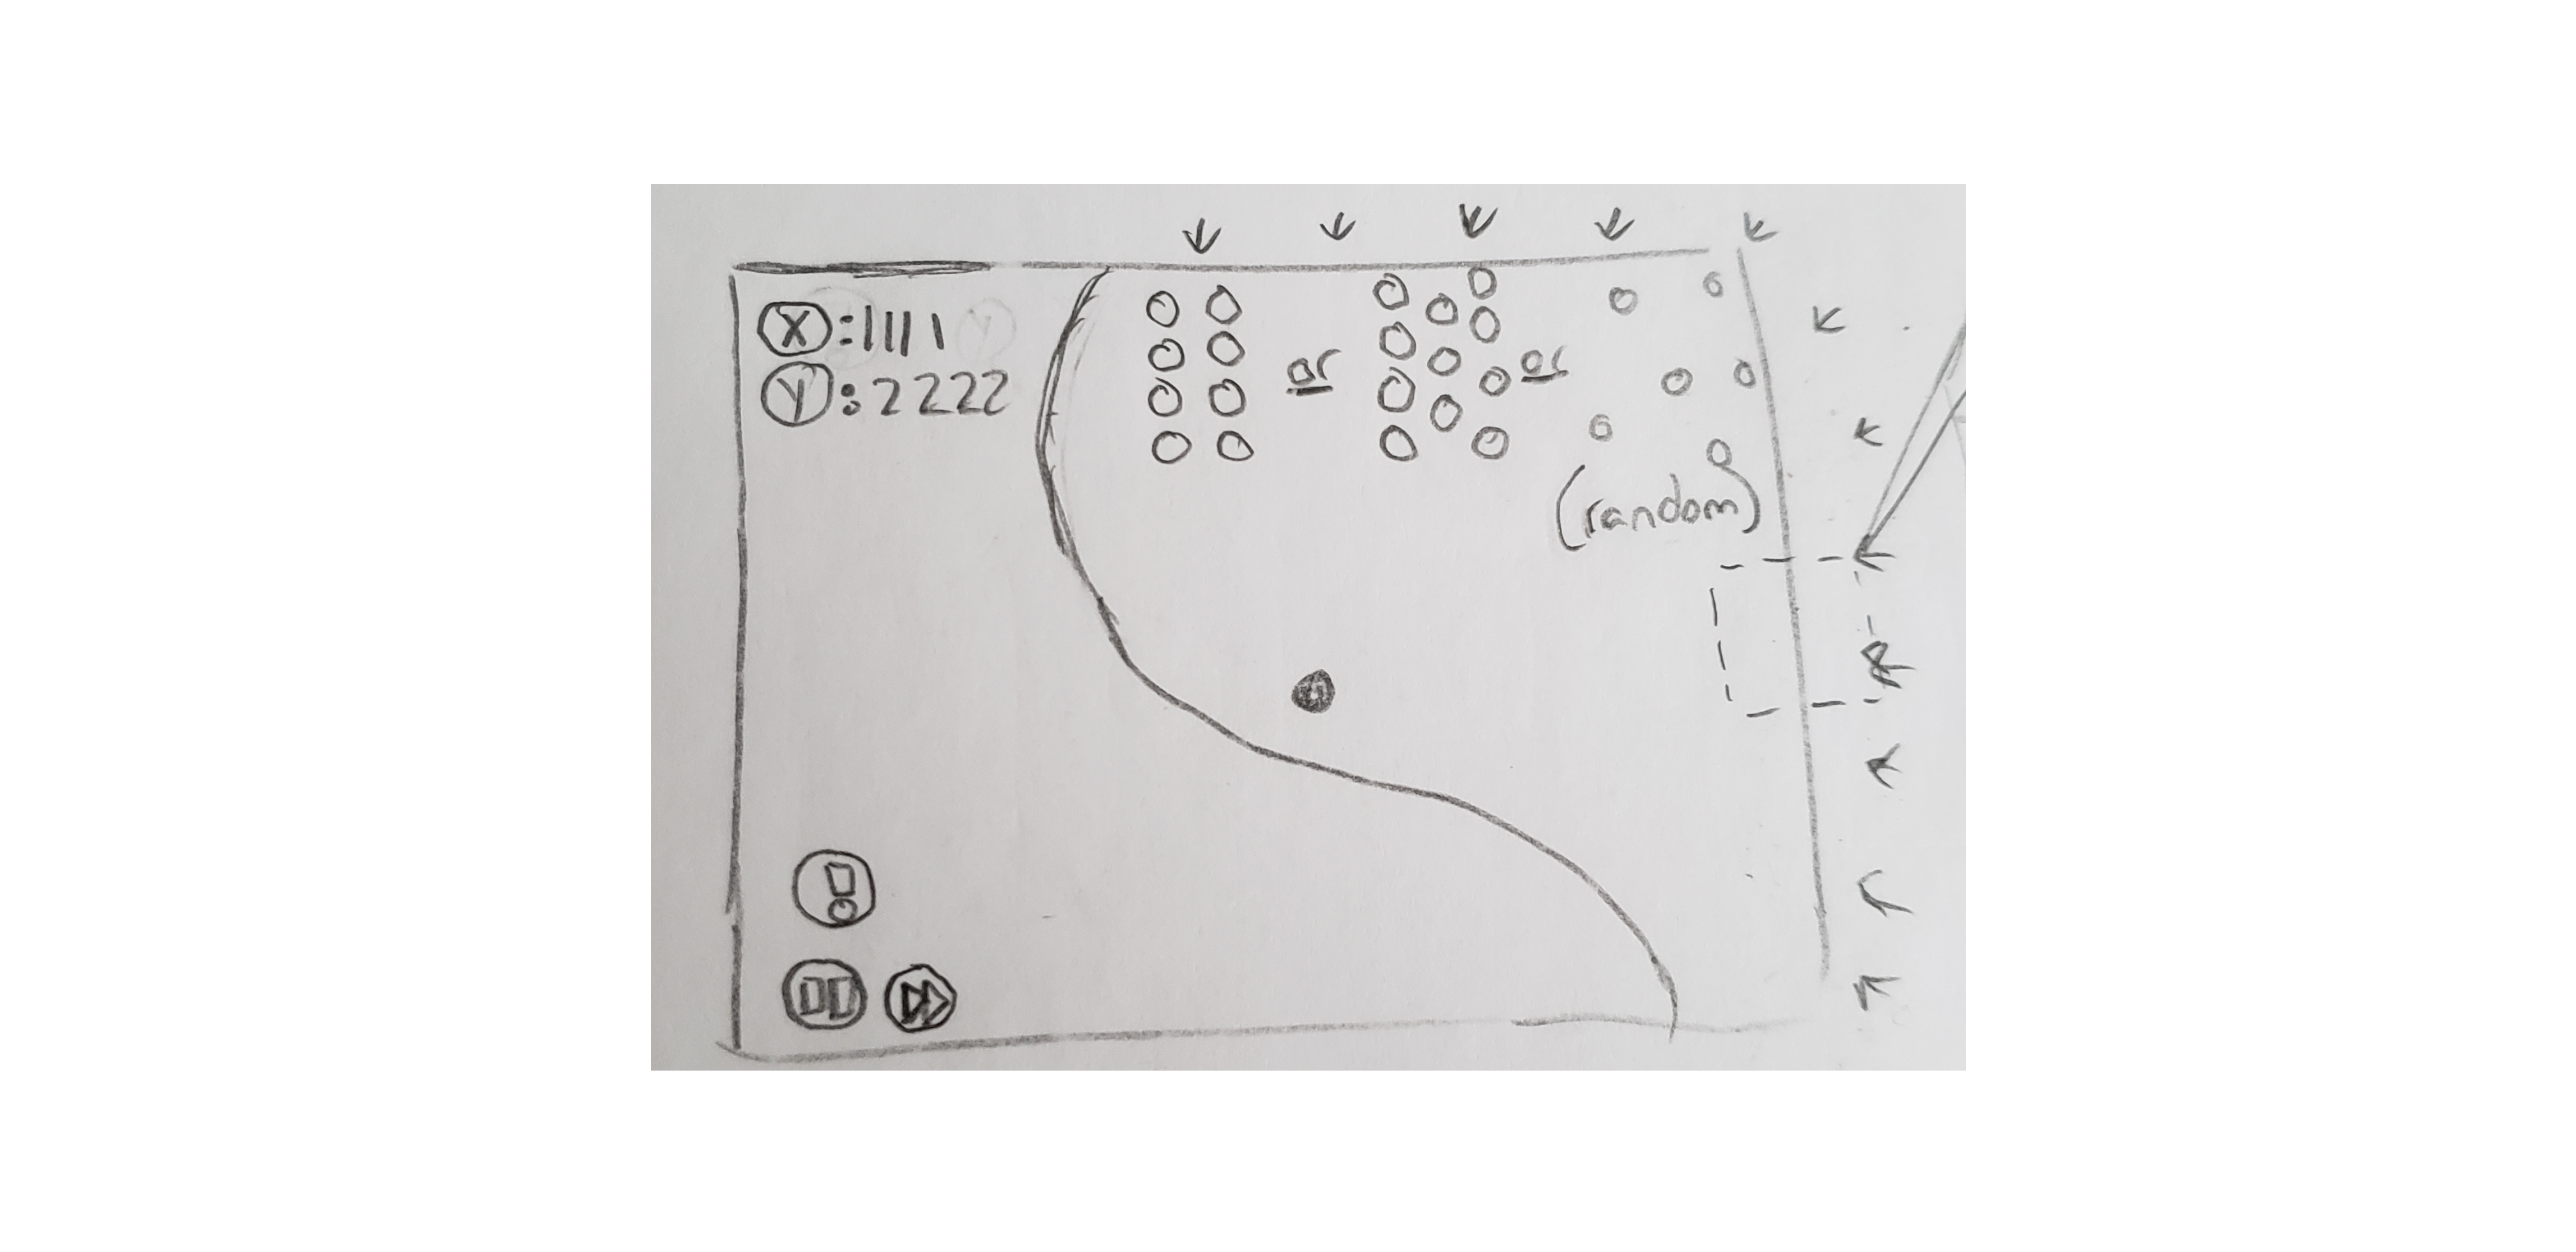 X:1111
Y:2222
or
or
(random)
!